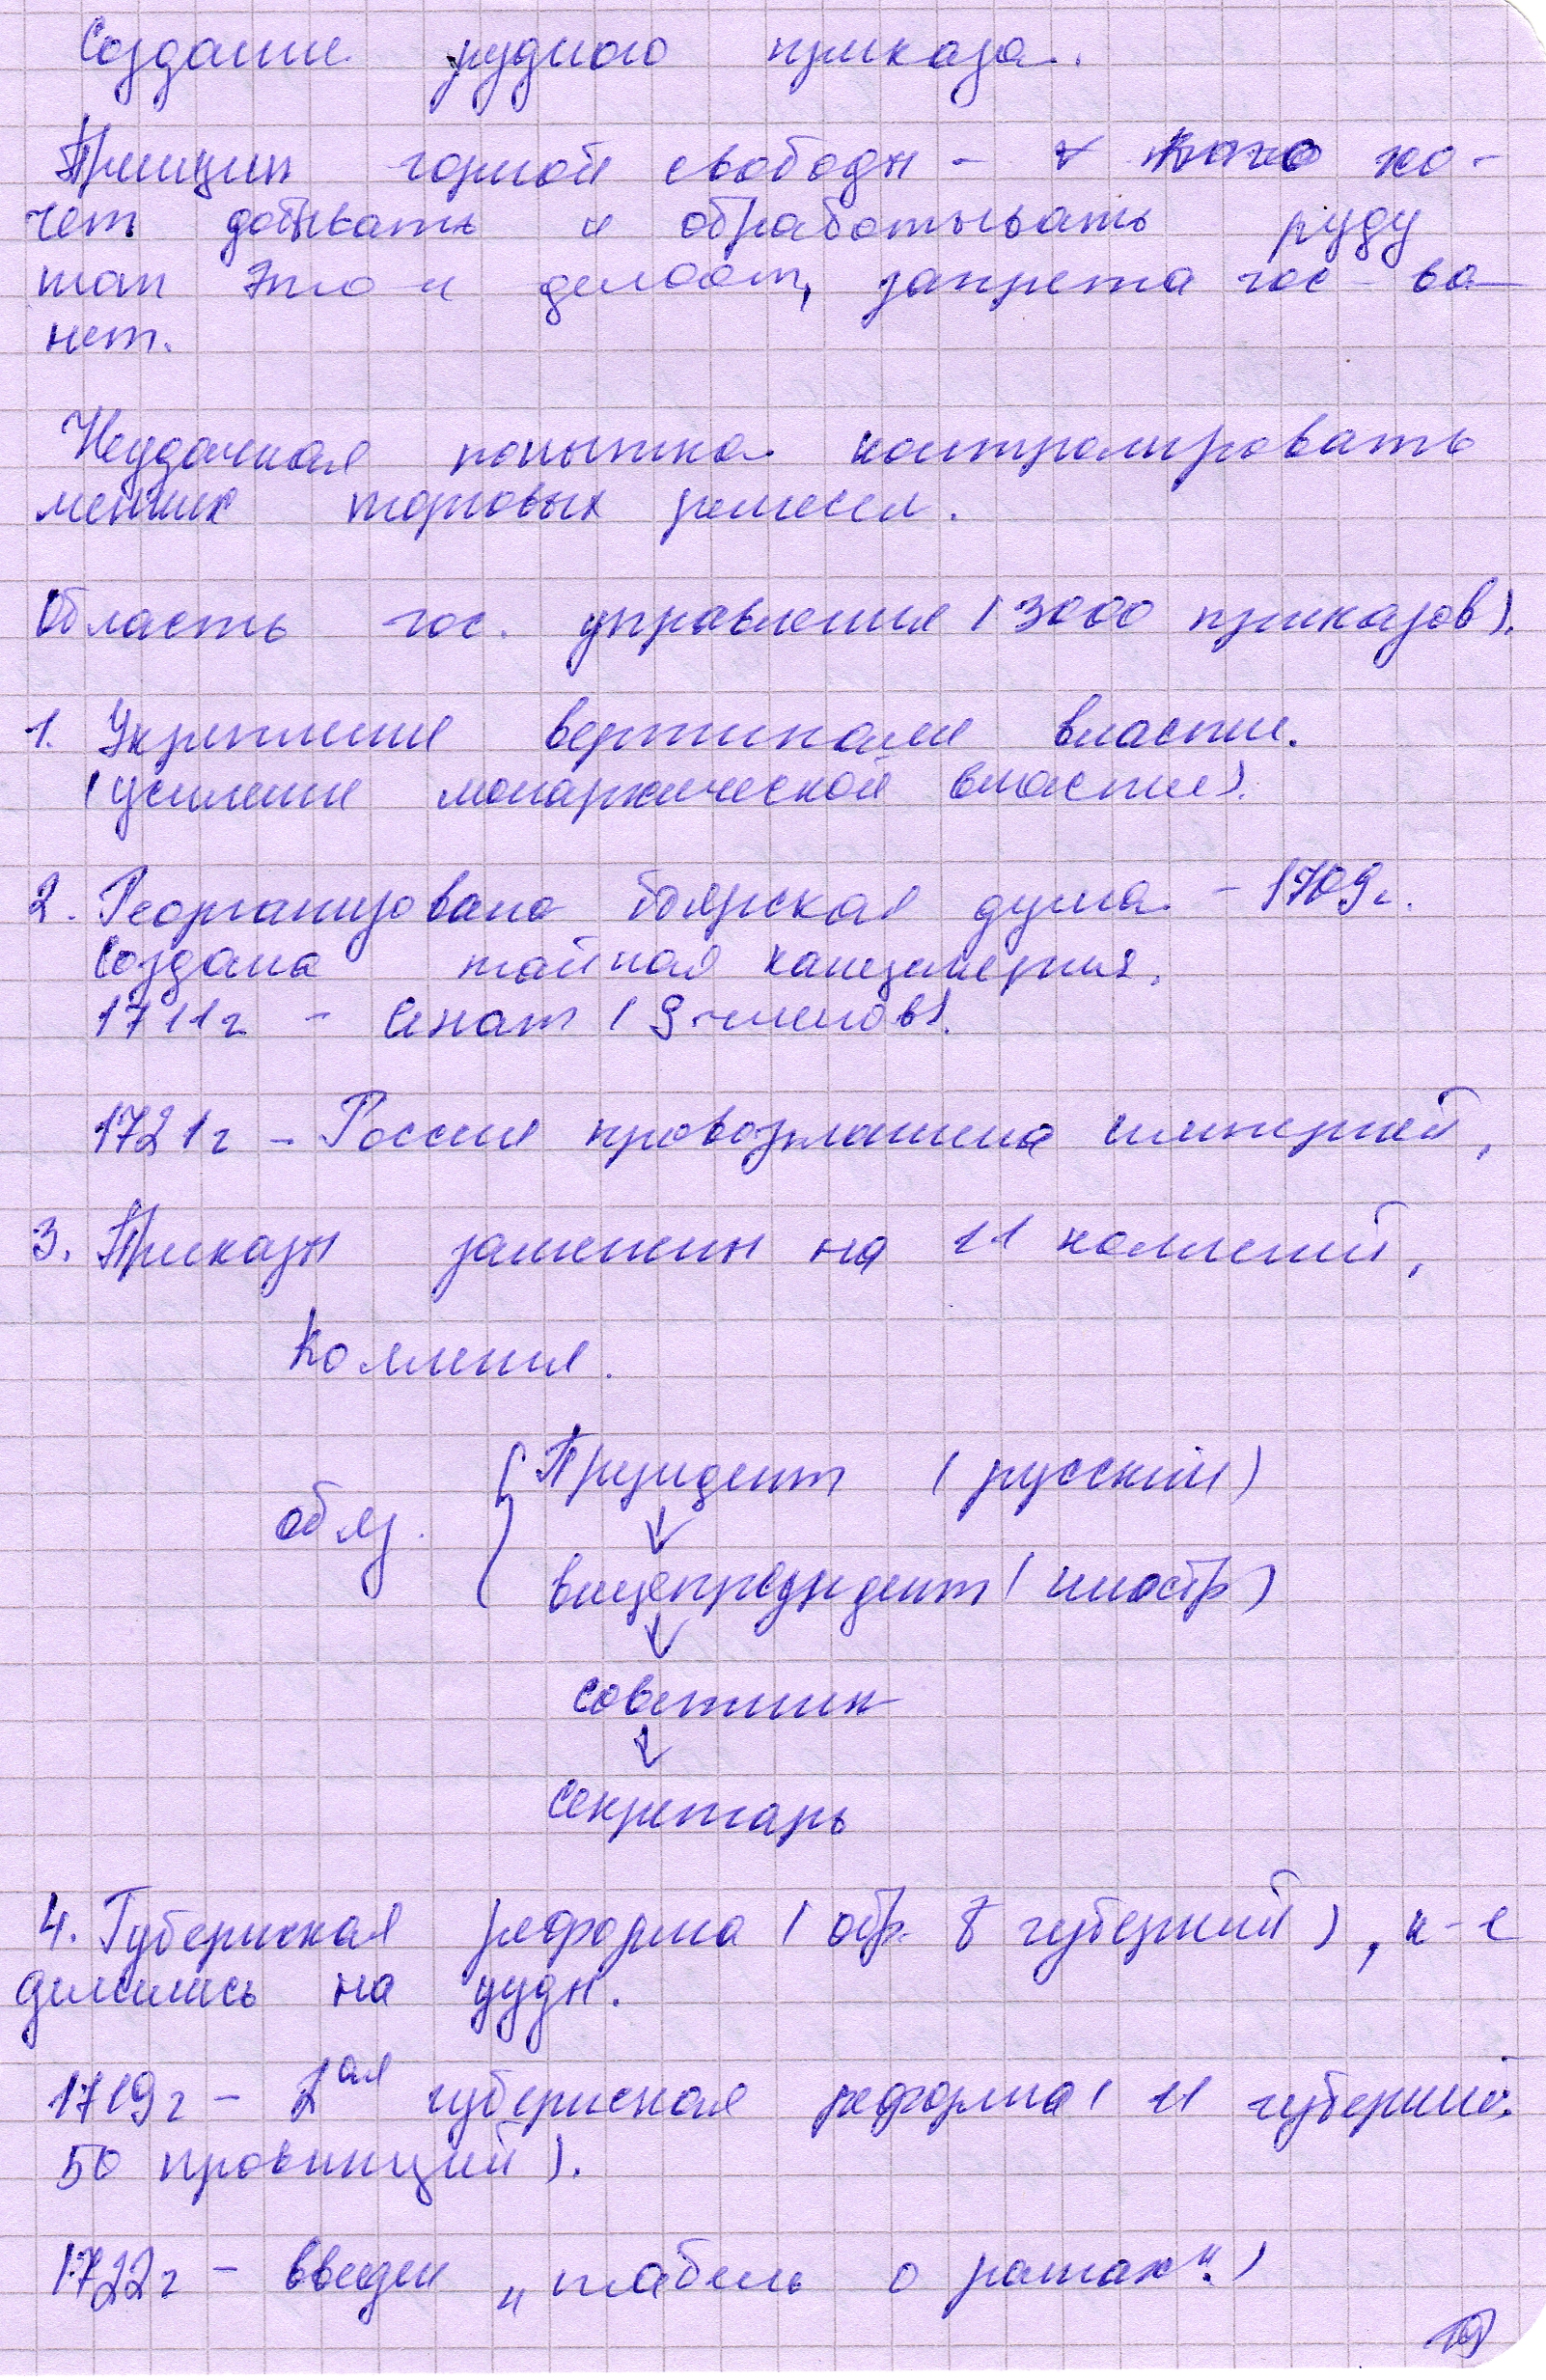 Создание рудного приказа.
Принцип горной свободы - кто хо-
чет добывать и обрабатывать руду
тот это и делает, запрета гос-ва
нет.
Неудачная попытка контролировать
мелких торговых ремесел.
Область гос. управления (3000 приказов).
1. Укрепление вертикали власти.
(усиление монархической власти).
2. Реорганизована боярская дума - 1709г.
Создана тайная канцелерия.
1711г - Сенат (9 членов).
1721г - Россия провозглашена империей.
3. Приказы заменены на 11 коллегий.
Коллегия.
обяз. { Президент (русский)
↓
вицепрезидент (иностр)
↓
советник
↓
секретарь
4. Губернская реформа (обр. 8 губерний), к-е
делились на уезды.
1719г - 2ая губернская реформа (11 губерний
50 провинций).
1722г - введен „табель о рангах".)
19